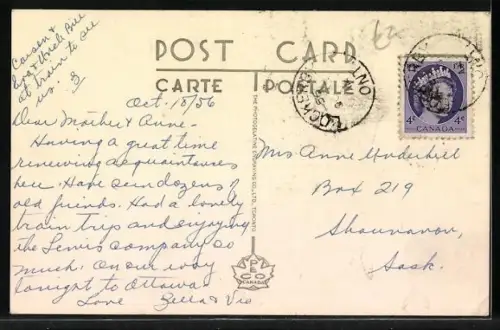 Carson &
Eva & Uncle Bill
at train to see
us. 3
POST CARD
CARTE POSTALE
Oct. 15/56
Dear Mother & Anne -
Having a great time
renewing acquaintances
here. Have seen dozens of
old friends. Had a lovely
train trip and enjoying
the Lewis company so
much. On our way
tonight to Ottawa
Love Zella & Vic
THE PHOTOGELATINE ENGRAVING CO. LTD., TORONTO
PECO
CANADA
ONT
4¢ 4¢
CANADA
Mrs Anne Underhill
Box 219
Shaunavon,
Sask.